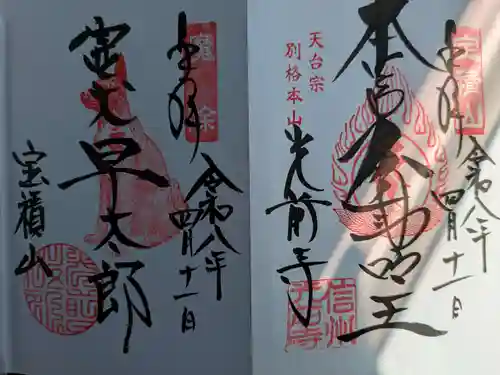 奉拝
令和八年
四月十一日
霊犬早太郎
宝積山
奉拝
宝積山
令和八年
四月十一日
本尊不動明王
天台宗
別格本山
光前寺